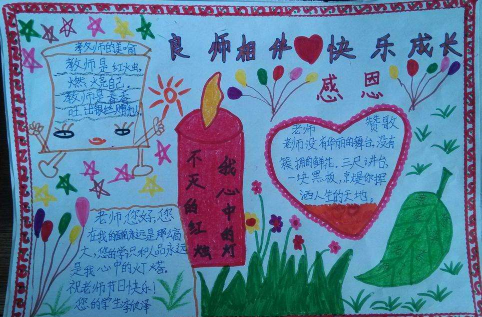 良师相伴 快乐成长
感恩
教师是红烛,
燃烧自己,
教师是春蚕
不灭的红烛
我心中的灯
老师 赞歌
老师没有华丽的舞台,没有
簇拥的鲜花,三尺讲台,
一块黑板,就是你挥
洒人生的天地。
老师,您好,您
在我的
人,您的学识和人品永远
是我心中的灯塔。
祝老师节日快乐!
您的学生